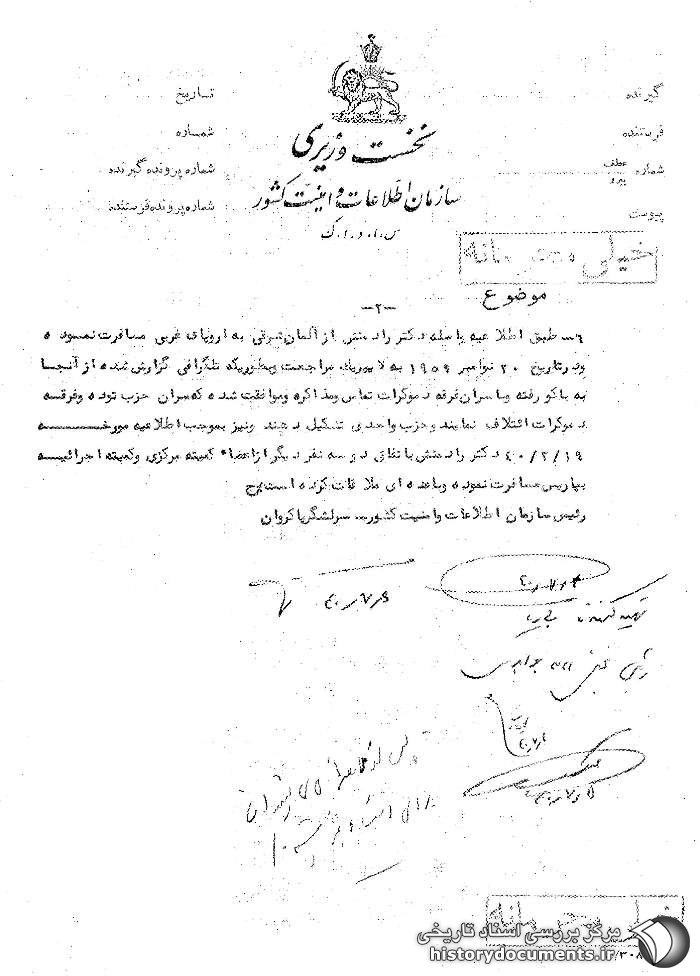 گیرنده
فرستنده
شماره عطف پیرو
پیوست
نخست وزیری
سازمان اطلاعات و امنیت کشور
س.ا.و.ا.ک
تاریخ
شماره
شماره پرونده گیرنده
شماره پرونده فرستنده
خیلی محرمانه
موضوع
-۲-
۶- طبق اطلاعیه واصله دکتر رادمنش از آلمان شرقی به اروپای غربی مسافرت نموده
ودرتاریخ ۲۰ نوامبر ۱۹۵۹ به لایپزیك مراجعت وبطوریکه تلگرافی گزارش شده از آنجا
به باکو رفته وباسران فرقه دموکرات تماس ومذاکره وموافقت شده که سران حزب توده وفرقه
دموکرات ائتلاف نمایند وحزب واحدی تشکیل دهند ونیز بموجب اطلاعیه مورخه
۴۰/۲/۱۹ دکتر رادمنش باتفاق دو سه نفر دیگر ازاعضاء کمیته مرکزی وکمیته اجرائیه
بپاریس مسافرت نموده وباعده ای ملاقات کرده است.ج
رئیس سازمان اطلاعات وامنیت کشور- سرلشگر پاکروان
تهیه کننده
رئیس بخش
خیلی محرمانه
مرکز بررسی اسناد تاریخی
historydocuments.ir